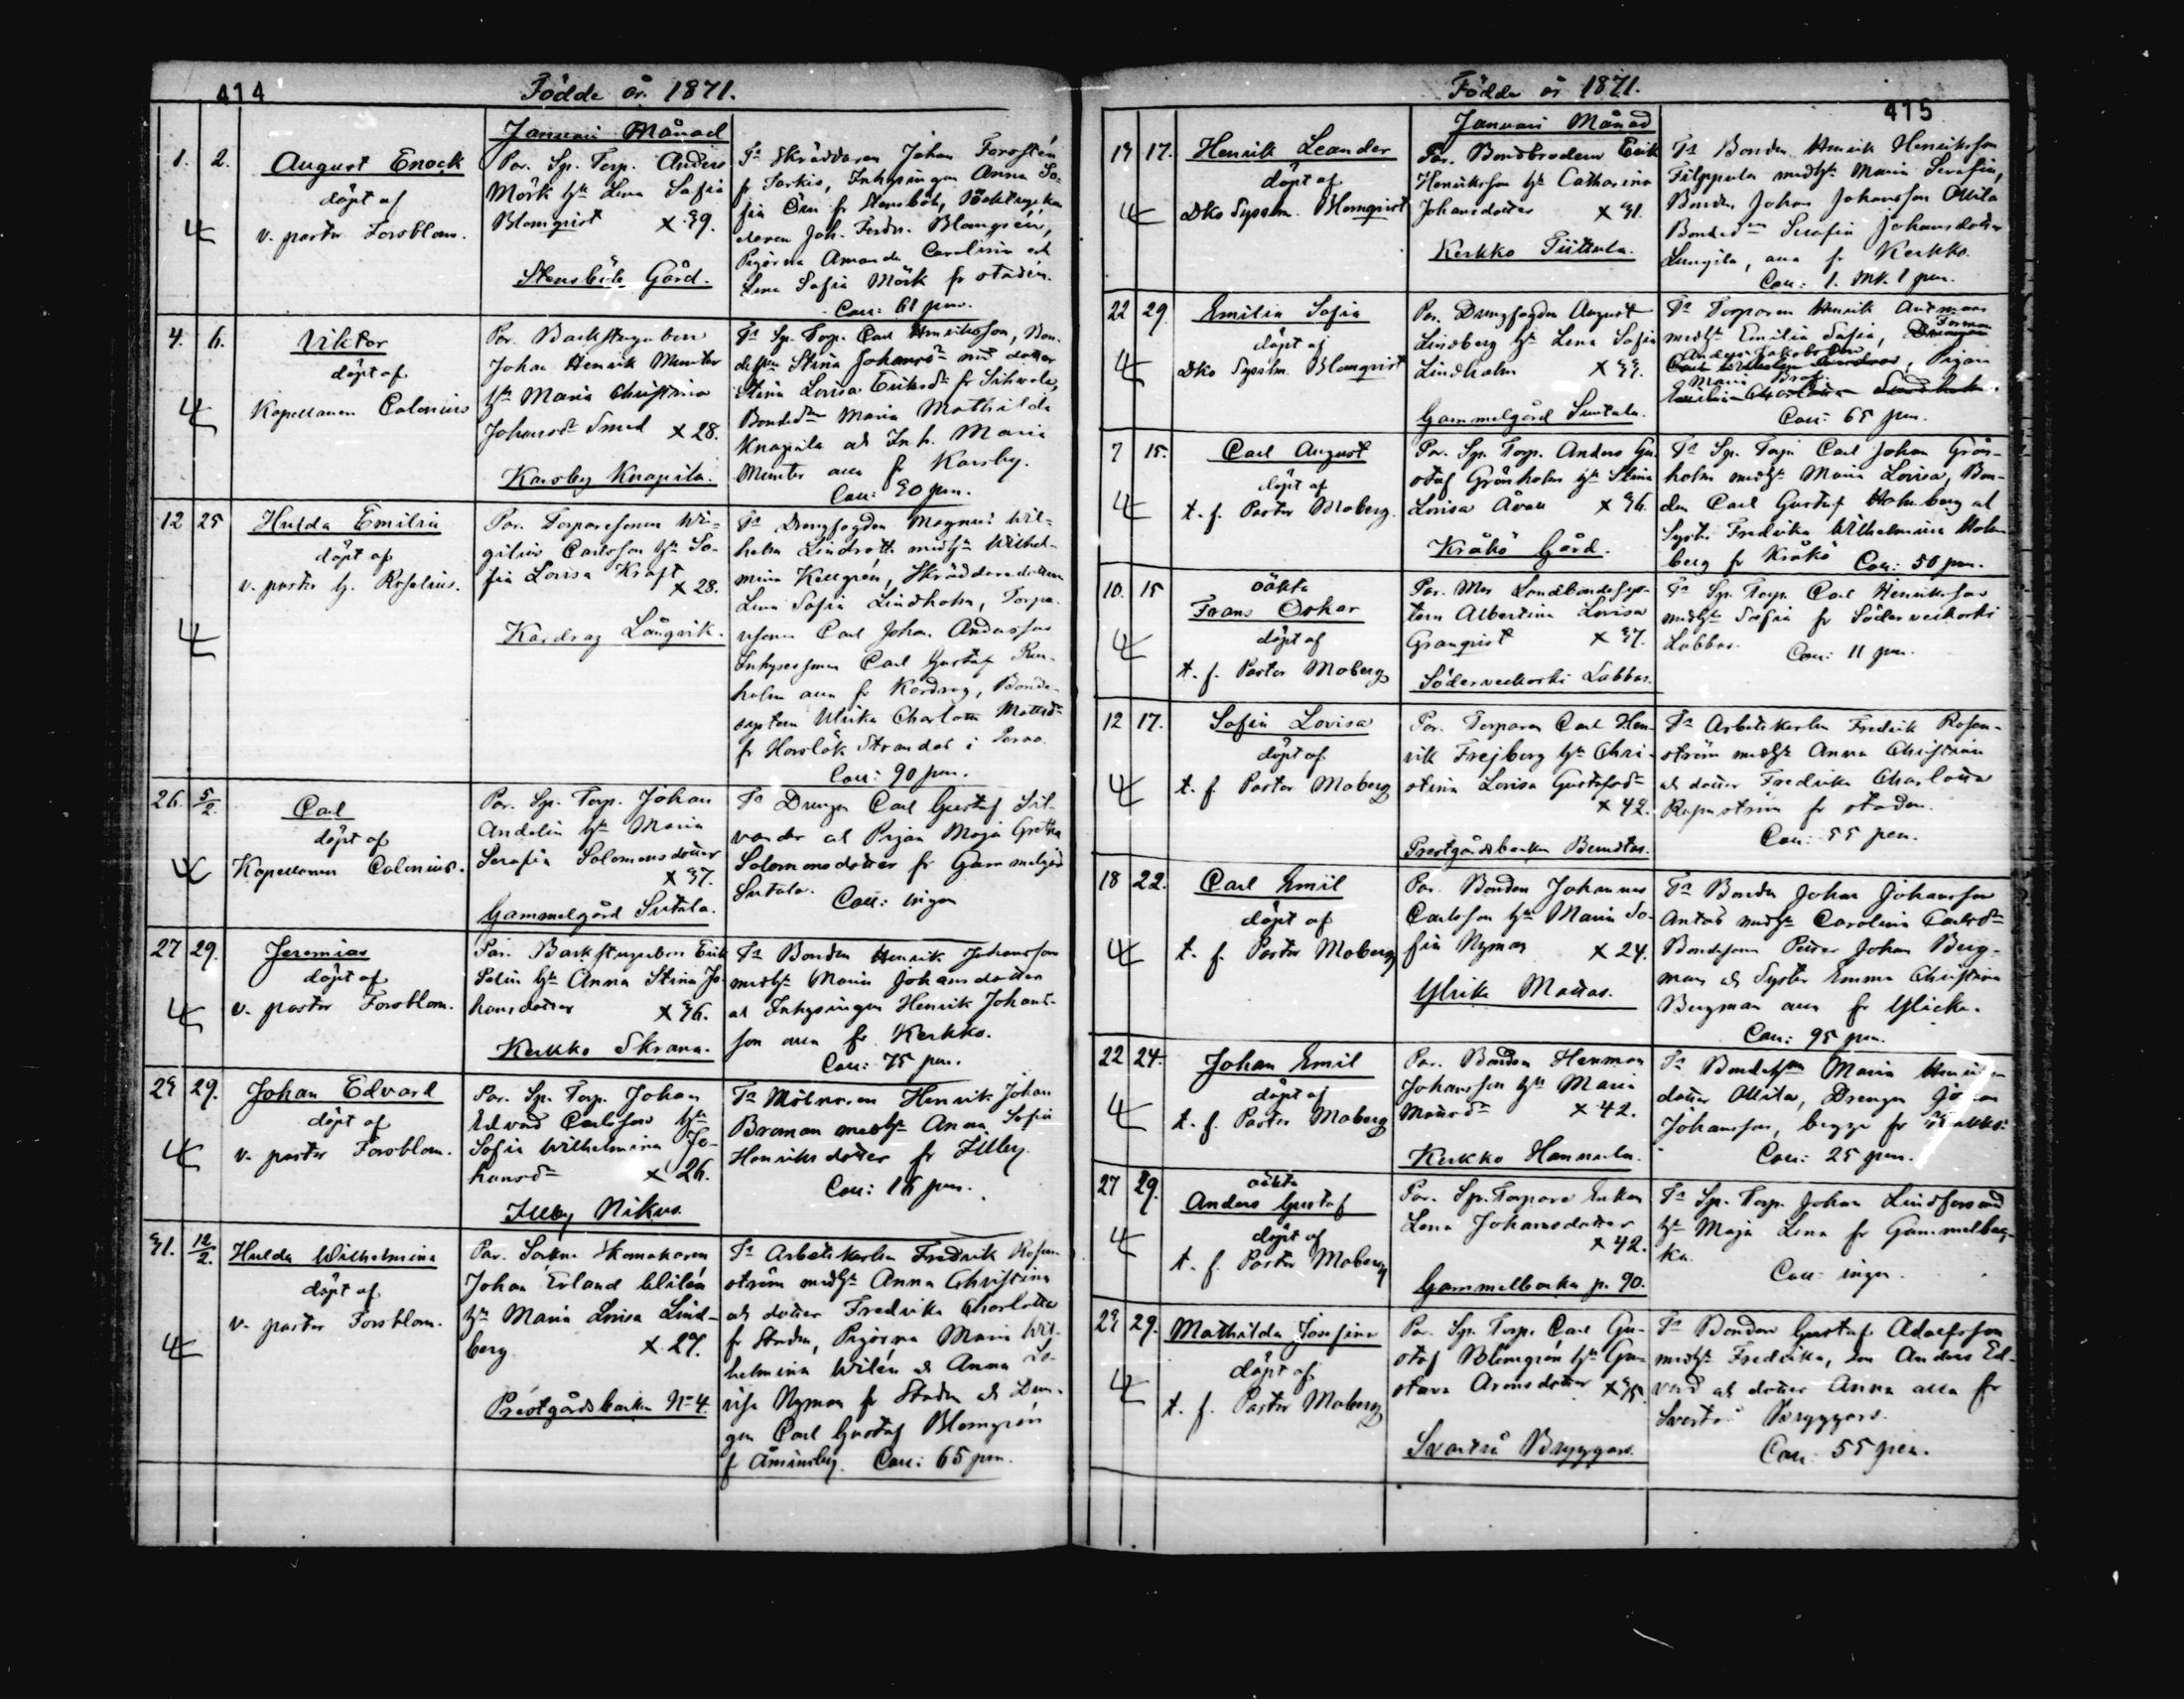 414
Födde år 1871.
Januari Månad
1. 2. August Enock
döpt af
v. pastor Forsblom.
Par. Sp. Torp. Anders
Mörk hu Lena Sofia
Blomqvist x 39.
Stensböle Gård.
Fr Skräddaren Johan Forstén
fr Sarkis, Inhysingen Anna So-
fia Öst fr Stensböle,
Joh. Ferdn. Blomgrén,
Pigorna Amanda Carolina och
Lena Sofia Mörk fr staden.
Coll: 61 pen.
4. 6. Viktor
döpt af
Kapellanen Calenius
Par. Backstugubon
Johan Henrik Munter
hu Maria Christina
Johansdr Smed x 28.
Karsby Knapila.
Fr Sp. Torp. Carl Henriksson, Bon-
Stina Johansdr med dotter
Stina Lovisa Eriksdr fr
Bondedr Maria Mathilda
Knapila och Inh. Maria
Munter alla fr Karsby.
Coll: 30 pen.
12 25 Hulda Emilia
döpt af
v. pastor G. Roselius.
Par. Torparesonen Wi-
gilius Carlsson hu So-
fia Lovisa Kraft
x 28.
Kardrag Långvik.
Fr Drengfogden Magnus Wil-
helm Lindroth medh Wilhel-
mina Kellgrén, Skräddaredottren
Lena Sofia Lindholm, Torpa-
resonen Carl Johan Andersson
Inhysessonen Carl Gustaf Ren-
holm alla fr Kardrag, Bonde-
systern Ulrika Charlotta Mattsdr
fr Horslök Strandas i Perno.
Coll: 90 pen.
26. 5/2. Carl
döpt af
Kapellanen Calenius.
Par. Sp. Torp. Johan
Andelin hu Maria
Serafia Salomonsdotter
x 37.
Gammelgård Sutala.
Fr Drengen Carl Gustaf Sil-
vander och Pigan Maja Gretha
Salomonsdotter fr Gammelgård
Sutala. Coll: ingen
27 29. Jeremias
döpt af
v. pastor Forsblom.
Par. Backstugubon Erik
Selin hu Anna Stina Jo-
hansdotter x 36.
Kerkko Skrana.
Fr Bonden Henrik Johansson
medh Maria Johansdotter
och Inhysingen Henrik Johans-
son alla fr Kerkko.
Coll: 75 pen.
23 29. Johan Edvard
döpt af
v. pastor Forsblom.
Par. Sp. Torp. Johan
Edvard Carlsson hu
Sofia Wilhelmina Jo-
hansdr x 26.
Illby Nikus.
Fr Mölnaren Henrik Johan
Broman medh Anna Sofia
Henriksdotter fr Illby.
Coll: 15 pen.
31. 12/2. Hulda Wilhelmina
döpt af
v. pastor Forsblom.
Par. Sockne Skomakaren
Johan Erland Wilén
hu Maria Lovisa Lind-
berg x 27.
Prostgårdsbacken No 4.
Fr Arbetskarlen Fredrik Rosen-
ström medh Anna Christina
och dotter Fredrika Charlotta
fr Staden, Pigorna Maria Wil-
helmina Wilén och Anna Lo-
visa Nyman fr Staden och Dren-
gen Carl Gustaf Blomgrén
fr Åminsby. Coll: 65 pen.
415
Födde år 1871.
Januari Månad
17. Henrik Leander
döpt af
Dko Sysslm. Blomqvist
Par. Bondbrodern Erik
Henriksson hu Catharina
Johansdotter x 31.
Kerkko Tiittula.
Fr Bonden Henrik Henriksson
Filppula medh Maria Serafia,
Bonden Johan Johansson Ollila
Bondedr Serafia Johansdotter
alla fr Kerkko.
Coll: 1. Mk. 1 pen.
22 29 Emilia Sofia
döpt af
Dko Sysslm. Blomqvist
Par. Drengfogden August
Lindberg hu Lena Sofia
Lindholm x 33.
Gammelgård Sutala.
Fr Torparen Henrik Antman
medh Emilia Sofia,
Anders Jakobsson, Pigan
Maria
Coll: 65 pen.
7 15. Carl August
döpt af
t. f. Pastor Moberg.
Par. Sp. Torp. Anders Gu-
staf Grönholm hu Stina
Lovisa x 36.
Kråkö Gård.
Fr Sp. Torp. Carl Johan Grön-
holm medh Maria Lovisa, Bon-
den Carl Gustaf Holmberg och
Syst. Fredrika Wilhelmina Holm-
berg fr Kråkö Coll: 50 pen.
10. 15 oäkta
Frans Oskar
döpt af
t. f. Pastor Moberg
Par. Mor Landbondesys-
tern Albertina Lovisa
Granqvist x 37.
Söderveckoski Labbas.
Fr Sp. Torp. Carl Henriksson
medh Sofia fr Söderveckoski
Labbas. Coll: 11 pen.
12 17. Sofia Lovisa
döpt af
t. f. Pastor Moberg
Par. Torparen Carl Hen-
rik Frejberg hu Chri-
stina Lovisa Gustafsdr
x 42.
Prostgårdsbacken Berndtas.
Fr Arbetskarlen Fredrik Rosen-
ström medh Anna Christina
och dotter Fredrika Charlotta
Rosenström fr staden.
Coll: 55 pen.
18 22. Carl Emil
döpt af
t. f. Pastor Moberg
Par. Bonden Johannes
Carlsson hu Maria So-
fia Nyman x 24.
Ylike Mattas.
Fr Bonden Johan Johansson
Antas medh Carolina Carlsdr
Bondesonen Petter Johan Berg-
man och Syster Emma Christina
Bergman alla fr Ylicke.
Coll: 95 pen.
22 24. Johan Emil
döpt af
t. f. Pastor Moberg
Par. Bonden Herman
Johansson hu Maria
Mattsdr x 42.
Kerkko Hannula.
Fr Maria
dotter Ollila, Drengen Johan
Johansson, begge fr
Coll: 25 pen.
27 29. oäkta
Anders Gustaf
döpt af
t. f. Pastor Moberg
Par. Sp. Torpare Enkan
Lena Johansdotter
x 42.
Gammelbacka p. 90.
Fr Sp. Torp. Johan Lindfors med
hu Maja Lena fr Gammelbac-
ka.
Coll: ingen.
23 29. Mathilda Josefina
döpt af
t. f. Pastor Moberg
Par. Sp. Torp. Carl Gu-
staf Blomgrén hu Gu-
stava Aronsdotter x 35.
Svartså Bryggars.
Fr Bonden Gustaf Adolfsson
medh Fredrika, son Anders Ed-
vard och dotter Anna alla fr
Svartså Bryggars.
Coll: 55 pen.